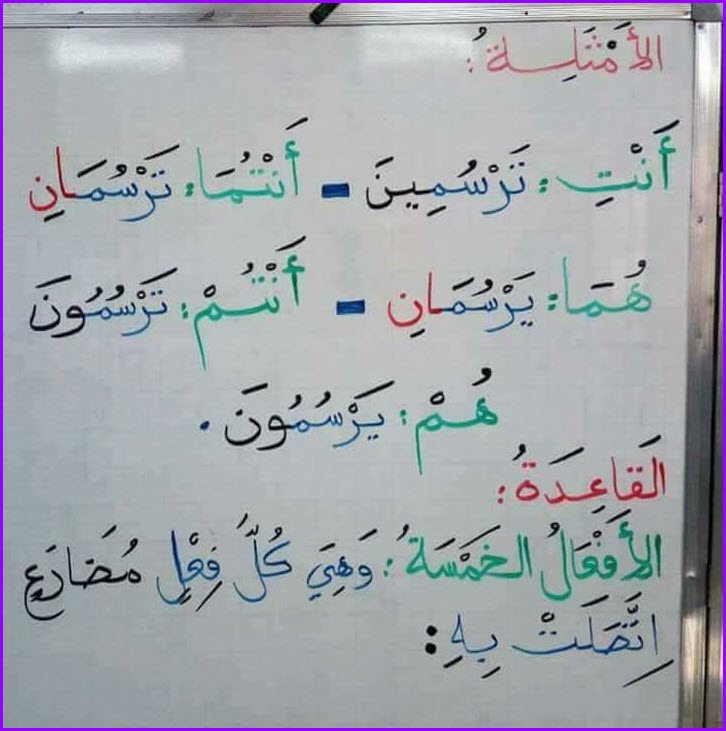 الأَمْثِلَةُ:
أَنْتِ: تَرْسُمِينَ - أَنْتُمَا: تَرْسُمَانِ
هُمَا: يَرْسُمَانِ - أَنْتُمْ: تَرْسُمُونَ
هُمْ: يَرْسُمُونَ.
القَاعِدَةُ:
الأَفْعَالُ الخَمْسَةُ: وَهِيَ كُلُّ فِعْلٍ مُضَارِعٍ
اِتَّصَلَتْ بِهِ: